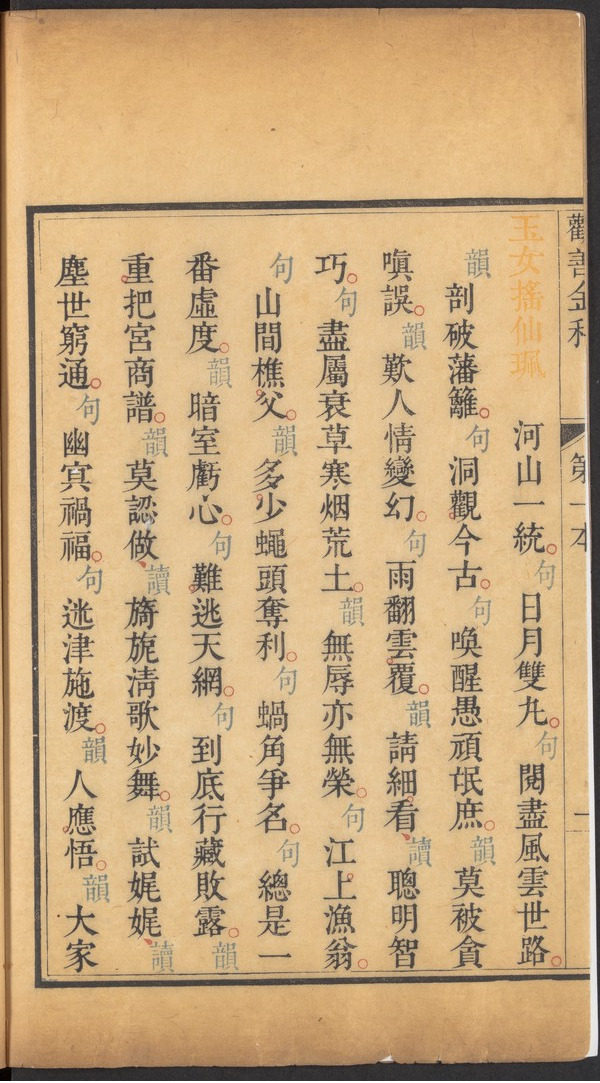 勸善金科 第一本 一
玉女搖仙珮
河山一統。句日月雙丸。句閱盡風雲世路。
韻剖破藩籬。句洞觀今古。句喚醒愚頑氓庶。韻莫被貪
嗔誤。韻歎人情變幻。句雨翻雲覆。韻請細看讀聰明智
巧。句盡屬衰草寒烟荒土。韻無辱亦無榮。句江上漁翁。
句山間樵父。韻多少蠅頭奪利。句蝸角爭名。句總是一
番虛度。韻暗室虧心。句難逃天網。句到底行藏敗露。韻
重把宮商譜。韻莫認做讀旖旎淸歌妙舞。韻試娓娓讀
塵世窮通。句幽冥禍福。句迷津施渡。韻人應悟。韻大家